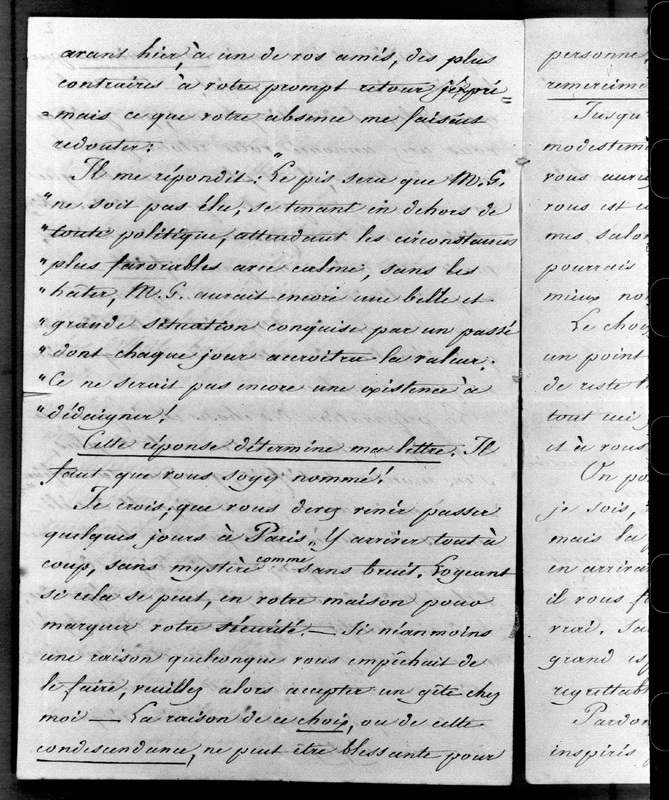 avant hier, à un de vos amis, des plus
contraires à votre prompt retour j'expri=
=mais ce que votre absence me faisait
redouter:
Il me répondit: "Le pis sera que M. G.
"ne soit pas élu, se tenant en dehors de
"toute politique, attendant les circonstances
"plus favorables avec calme, sans les
"hâter, M. G. aurait encore une belle et
"grande situation conquise par un passé
"dont chaque jour accroîtra la valeur.
"Ce ne serait pas encore une existence à
"dédaigner!
Cette réponse détermine ma lettre. Il
faut que vous soyez nommé!
Je crois, que vous devez venir passer
quelques jours à Paris. Y arriver tout à
coup, sans mystère comme sans bruit. Logeant
si cela se peut, en votre maison pour
marquer votre sécurité. — Si néanmoins
une raison quelconque vous empêchait de
le faire, veuillez alors accepter un gîte chez
moi — La raison de ce choix, ou de cette
condescendance, ne peut être blessante pour
personne,
remercime
Jusqu'
modestemen
vous auriez
vous est
mes salon
pourrais
mieux
Le choix
un point
de reste
tout
et à vous
On
je sois,
mais la
en arrivan
il vous
vrai.
grand
regrettabl
Pardon
inspirés